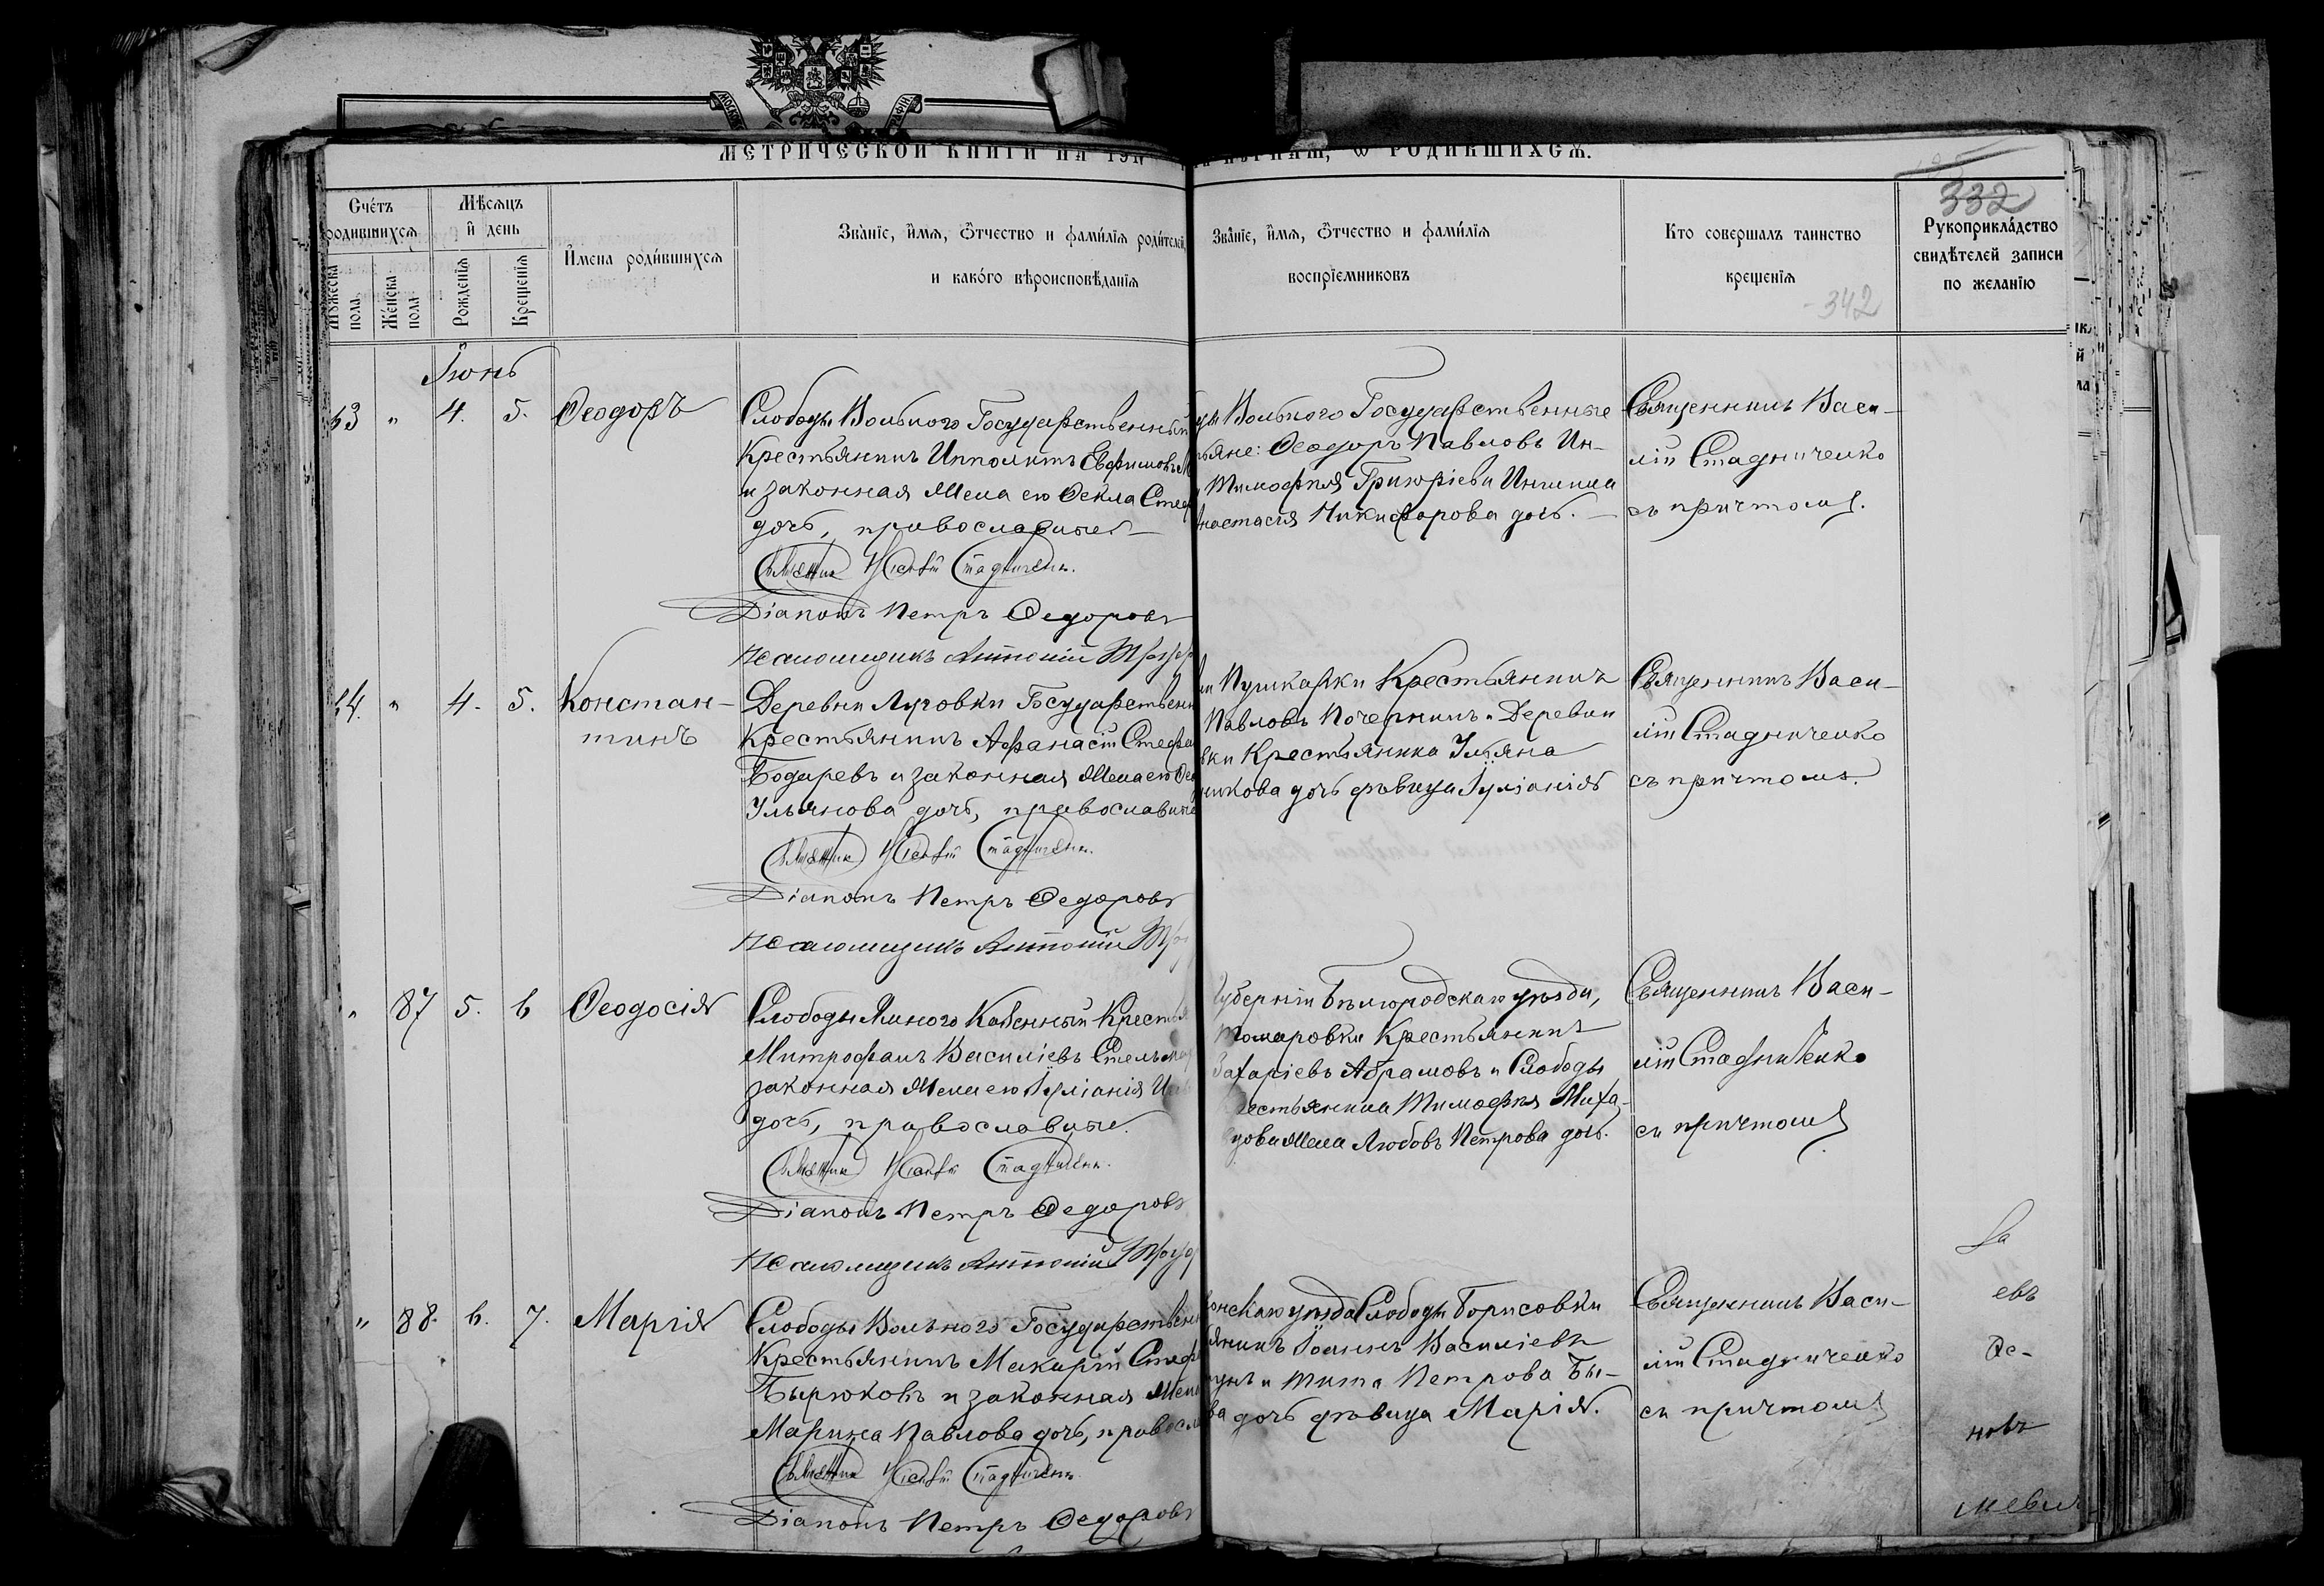 МЕТРИЧЕСКОЙ КНИГИ НА 191
Ѡ РОДИВШИХСѦ.
332
342
Счетъ родившихсѧ
Мѣсѧцъ и день
Мужеска пола
Женска пола
Рожденїѧ
Крещенїѧ
Имена родившихсѧ
Званїе, имѧ, ѿчество и фамилїѧ родителей,
и какого вѣроисповѣданїѧ
Званїе, имѧ, ѿчество и фамилїѧ
воспрїемниковъ
Кто совершалъ таинство
крещенїѧ
Рукоприкладство
свидѣтелей записи
по желанїю
Іюнь
63 " 4. 5. Ѳеодоръ
Слободы Вольного Государственный
Крестьянинъ Ипполитъ Евфимовъ
и законная жена его Ѳекла Стеф
дочь, православные
Діаконъ Петръ Ѳедоровъ
Псаломщикъ Антоній
Вольного Государственные
Ѳеодоръ Павловъ Ин-
Тимоѳея Григоріева
Никифорова дочь.
Священникъ Васи-
лій Стадниченко
съ причтомъ.
64. " 4. 5. Констан-
тинъ
Деревни Луговки Государствен
Крестьянинъ Аѳанасій Стефа
Бодаревъ и законная жена его
Ульянова дочь, православные
Діаконъ Петръ Ѳедоровъ
Псаломщикъ Антоній
Пушкарки Крестьянинъ
Павловъ Почернинъ и Деревни
вки Крестьянина Ульяна
никова дочь дѣвица Іуліанія
Священникъ Васи-
лій Стадниченко
съ причтомъ.
" 87 5. 6 Ѳеодосія
Слободы Казенный Кресть
Митрофанъ Василіевъ
законная жена его Іуліанія
дочь, православные.
Діаконъ Петръ Ѳедоровъ
Псаломщикъ Антоній
губерніи Бѣлгородскаго уѣзда,
Томаровки Крестьянинъ
Захаріевъ Абрамовъ и Слободы
рестьянина Тимоѳея Миха-
жена Любовь Петрова дочь.
Священникъ Васи-
лій Стадниченко
съ причтомъ
" 88. 6. 7. Марія
Слободы Вольного Государствен
Крестьянинъ Макарій Стеф
Бырюковъ и законная жена
Марина Павлова дочь, правосла
Діаконъ Петръ Ѳедоровъ
уѣзда Слободы Борисовки
янинъ Іоаннъ Василіевъ
и Тита Петрова Бы-
ва дочь дѣвица Марія.
Священникъ Васи-
лій Стадниченко
съ причтомъ
евъ
Ѳе-
новъ